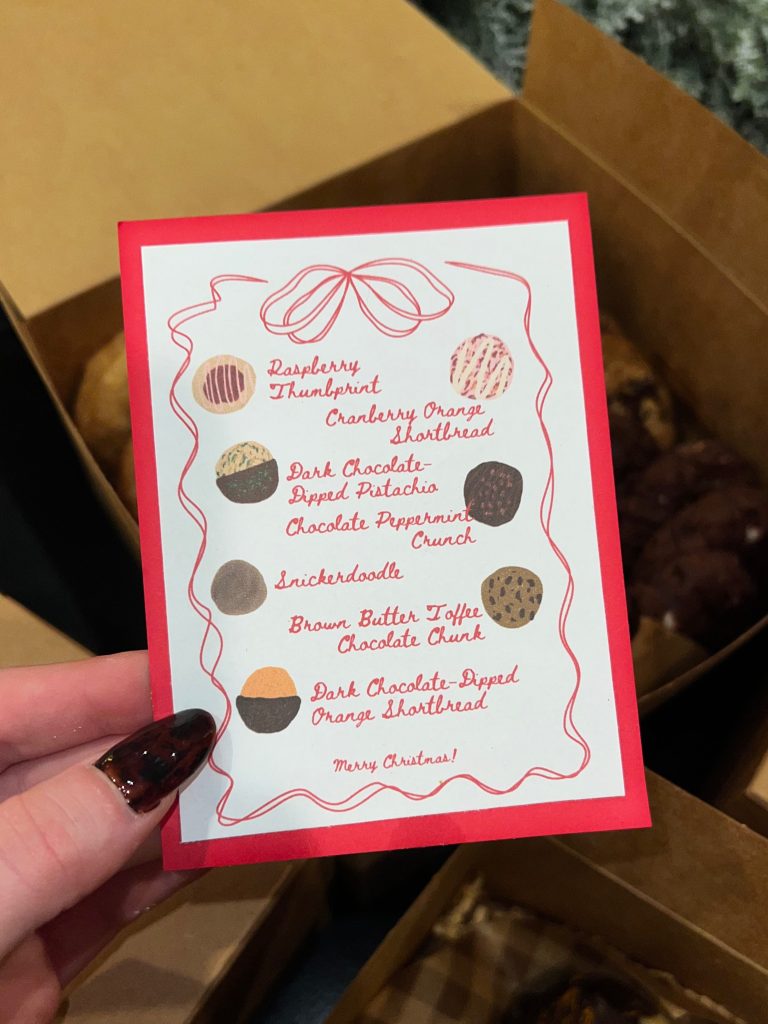 Raspberry
Thumbprint
Cranberry Orange
Shortbread
Dark Chocolate-
Dipped Pistachio
Chocolate Peppermint
Crunch
Snickerdoodle
Brown Butter Toffee
Chocolate Chunk
Dark Chocolate-Dipped
Orange Shortbread
Merry Christmas!